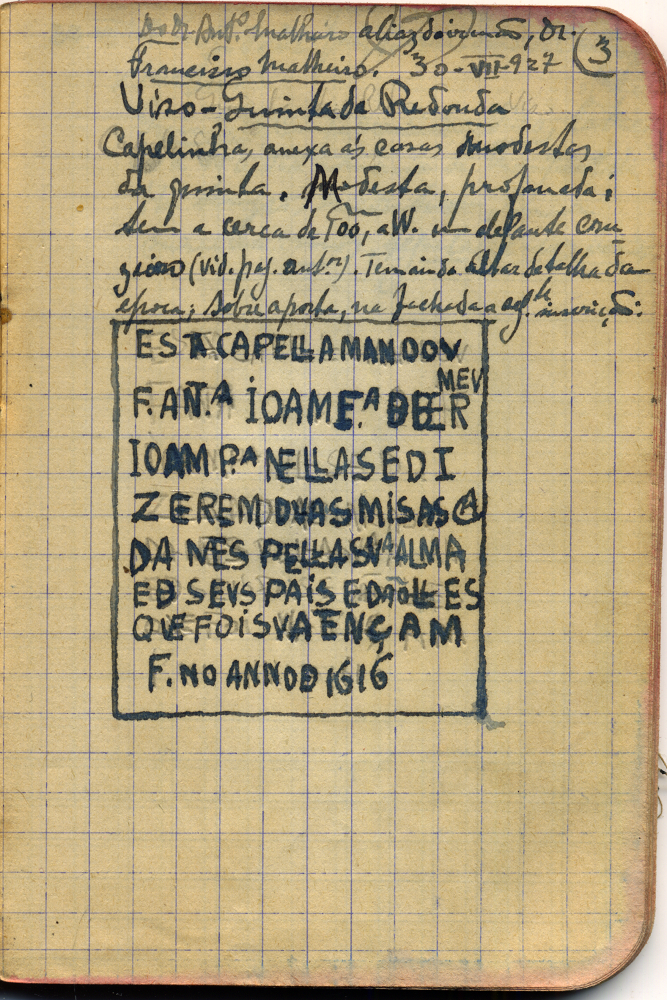 Do Dr. Antº. Malheiro aliás do irmão, Dr. 3
Francisco Malheiro. 30-VII-927
Viso-Quinta da Redonda
Capelinha, anexa ás casas modestas
da quinta. Modesta, profanada;
tem a cerca de 100, a W. um cru
zeiro (vid. pag. antºr). Tem ainda altar de talha da
epoca; sobre a porta, na fachada a segte inscrição:
ESTA CAPELLA MANDOV
MEV
F. ANT.A IOAM F.A DE ER
IOAM P.A NELLA SE DI
ZEREM DVAS MISAS CA
DA MES PELLA SVA ALMA
ED SEVS PAIS E DAQLLES
QVE FOI SVA TENÇAM
F. NO ANNO D 1616